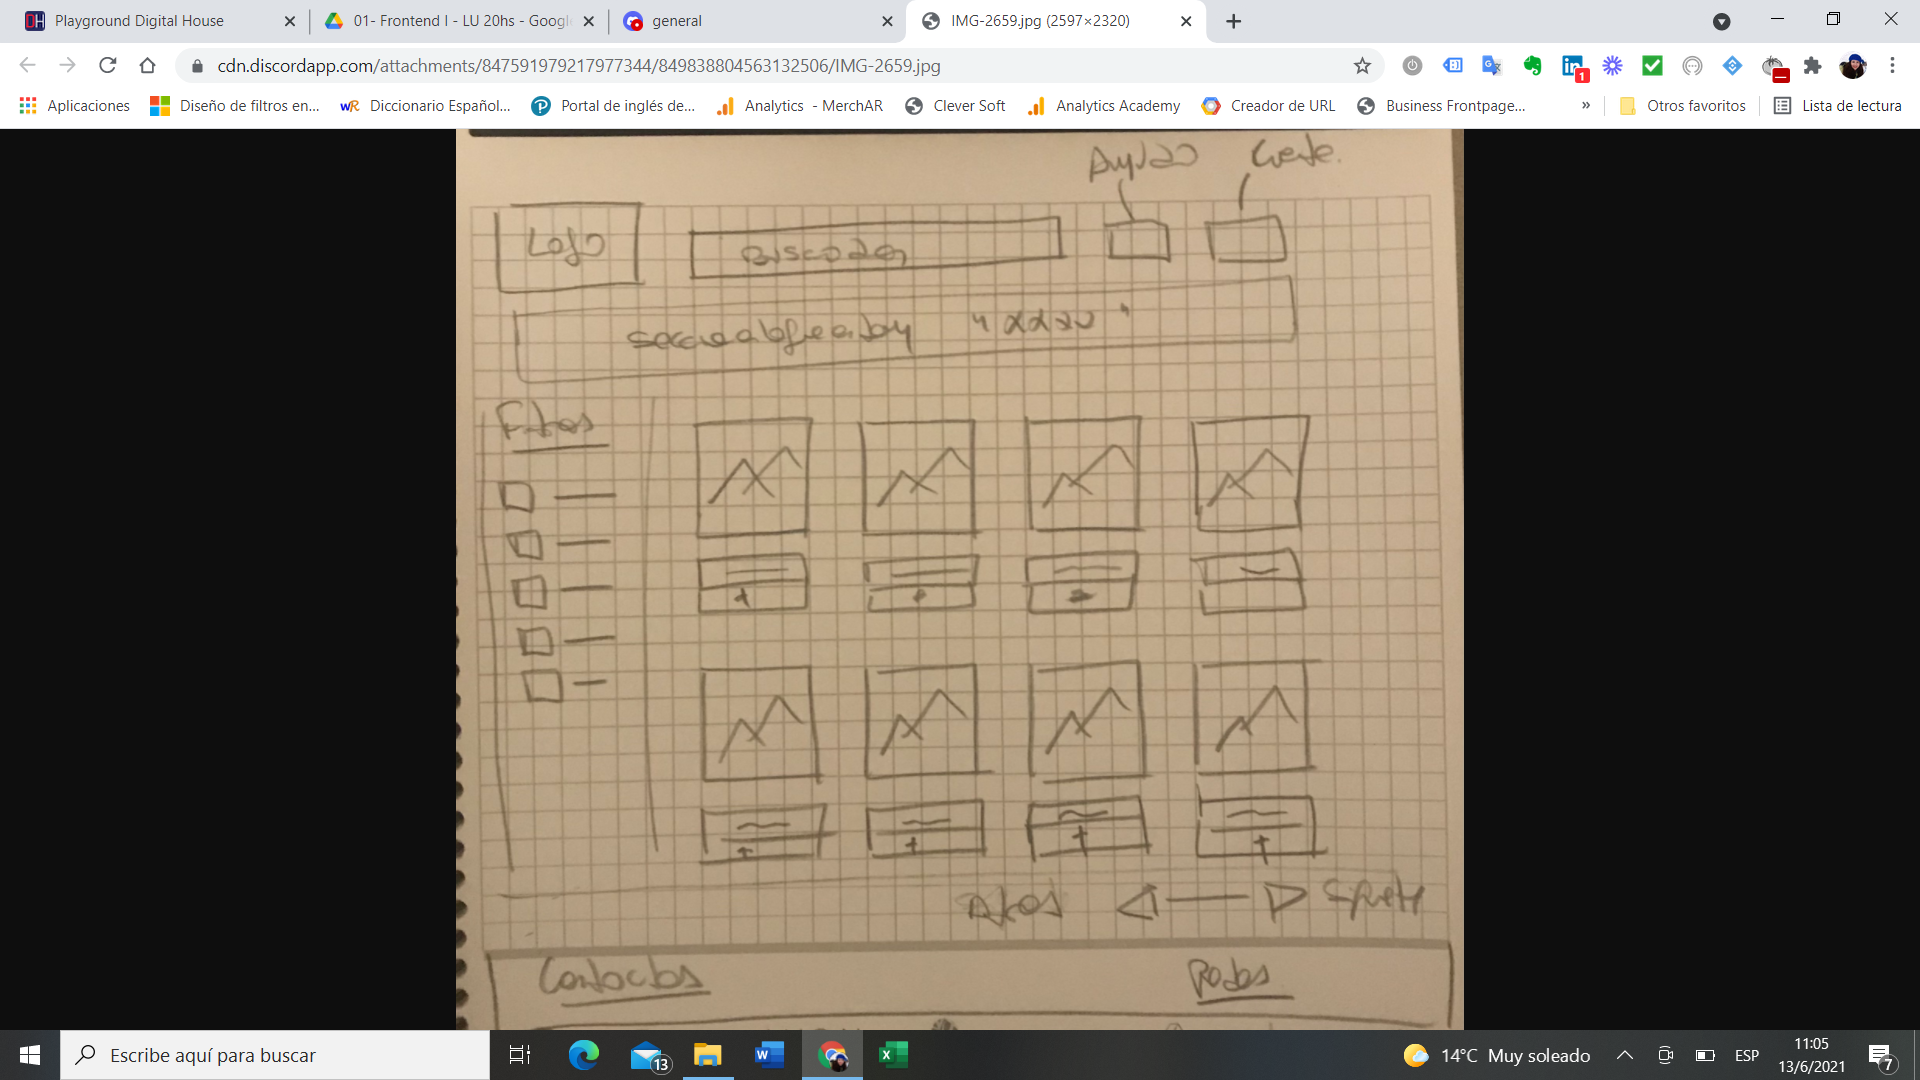 Playground Digital House
01- Frontend I - LU 20hs - Google
general
IMG-2659.jpg (2597×2320)
cdn.discordapp.com/attachments/847591979217977344/849838804563132506/IMG-2659.jpg
1
Aplicaciones
Diseño de filtros en...
wR Diccionario Español...
Portal de inglés de...
Analytics - MerchAR
Clever Soft
Analytics Academy
Creador de URL
Business Frontpage...
»
Otros favoritos
Lista de lectura
Logo
Buscador
Filtros
Atras
Contactos
Redes
Escribe aquí para buscar
13
14°C Muy soleado
ESP
11:05
13/6/2021
7